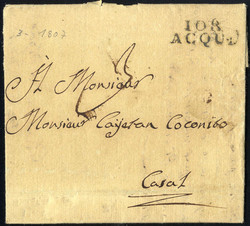 1807
108
ACQUI
A Monsieur
Monsieur Cajetan Coconito
Casal